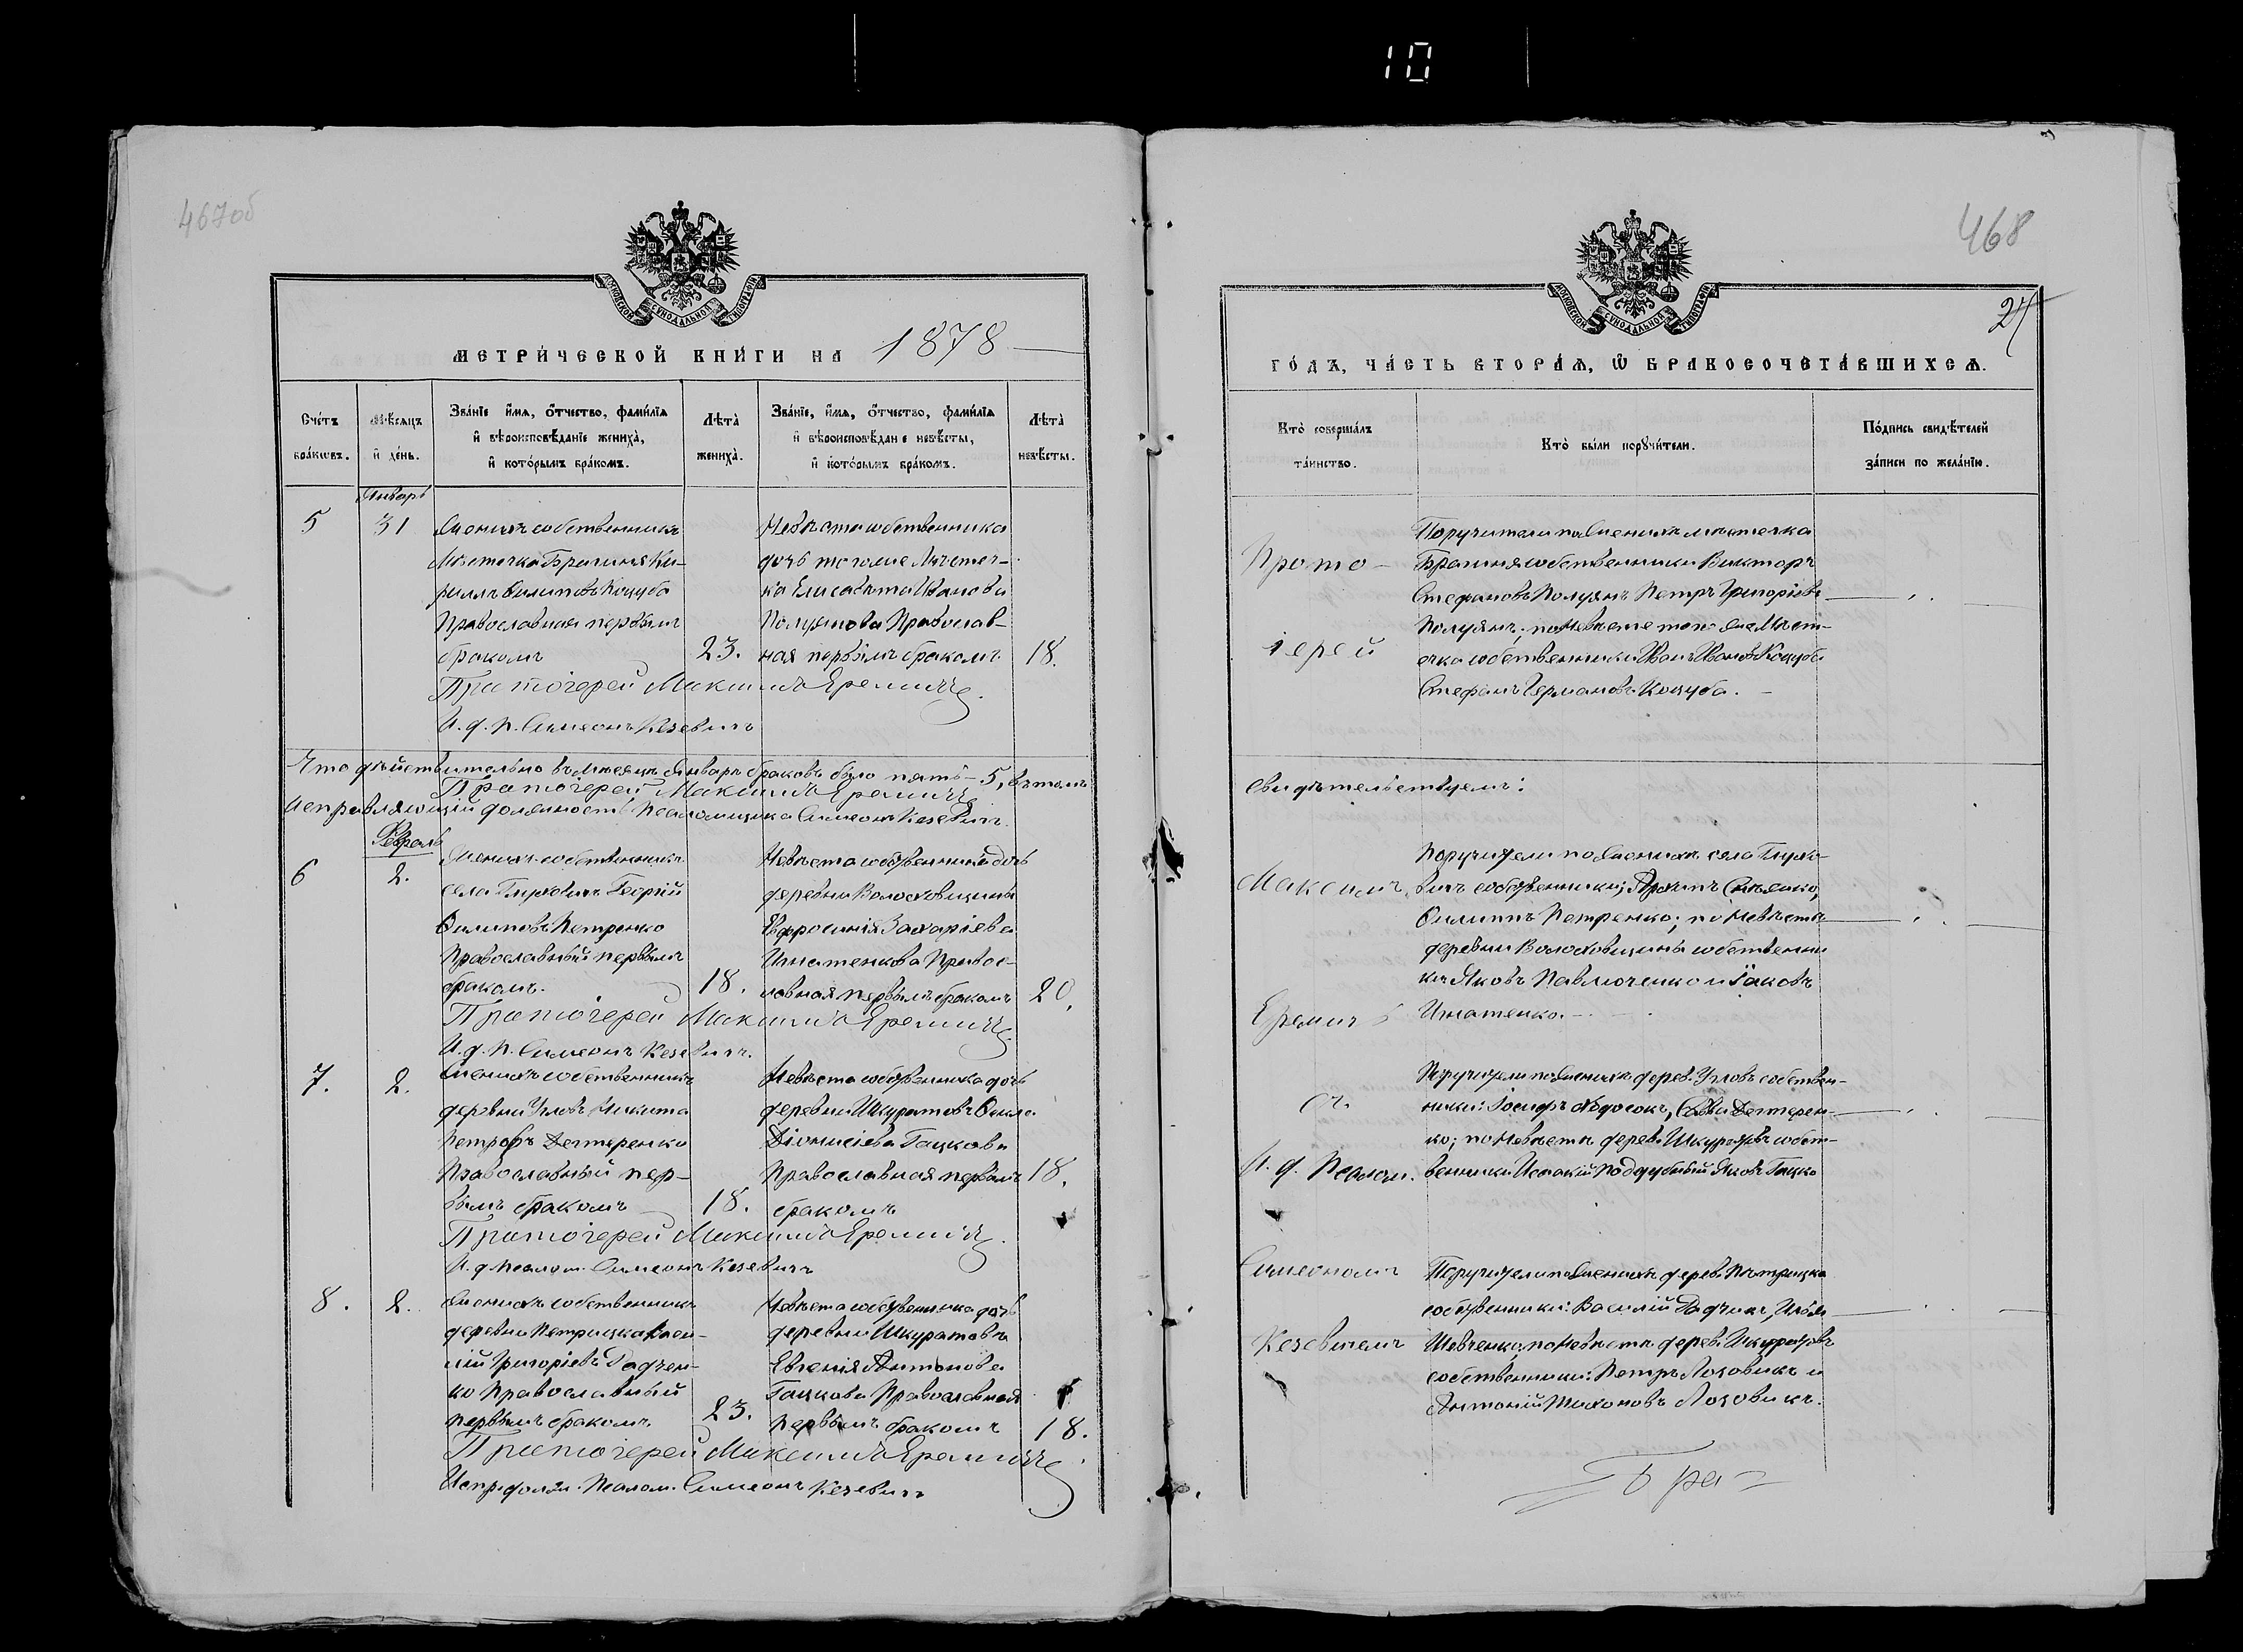 10
467об
МОСКОВСКОЙ СѴНОДАЛЬНОЙ ТИПОГРАФІИ
МЕТРИ́ЧЕСКОЙ КНИ́ГИ НА 1878
Сче́тъ бра́кωвъ.
Мѣ́сяцъ и҆ де́нь.
Зва́нїе и҆́мя, ѻ҆́тчество, фами́лїя
и҆ вѣроисповѣ́данїе жениха̀,
и҆ кото́рымъ бра́комъ.
Лѣта̀ жениха̀.
Зва́нїе, и҆́мя, ѻ҆́тчество, фами́лїя
и҆ вѣроисповѣ́данїе невѣ́сты,
и҆ кото́рымъ бра́комъ.
Лѣта̀ невѣ́сты.
Январь
5
31
Женихъ собственникъ
Мѣстечка Брагиня Ки-
риллъ Филиповъ Коцуба
Православная первымъ
бракомъ
23.
Невѣста собственника
дочь тогоже Мѣстеч-
ка Елисавѣта Иванова
Полуянова Православ-
ная первымъ бракомъ
18.
Протоіерей Максимъ Еремичъ.
И. д. п. Симеонъ Кезевичъ
Что дѣйствительно въ Мѣсяцѣ Январѣ браковъ было пять - 5, въ томъ
Протоіерей Максимъ Еремичъ
Исправляющій должность Псаломщика Симеонъ Кезевичъ.
Февраль
6
2.
Женихъ собственникъ
села Глуховичъ Георгій
Филиповъ Петренко
Православный первымъ
бракомъ.
18.
Невѣста собственника дочь
деревни Волоховщины
Евфросинія Захаріева
Игнатенкова Правос-
лавная первымъ бракомъ
20.
Протоіерей Максимъ Еремичъ
И. д. п. Симеонъ Кезевичъ.
7.
2.
Женихъ собственникъ
деревни Угловъ Никита
Петровъ Дегтеренко
Православный пер-
вымъ бракомъ
18.
Невѣста собственника дочь
деревни Шкуратовъ Фекла
Діонисіева Гацкова
Православная первымъ
бракомъ
18.
Протоіерей Максимъ Еремичъ.
И. д. псалом. Симеонъ Кезевичъ
8.
2.
Женихъ собственникъ
деревни Петрицка
Григоріевъ Радчен-
ко Православный
первымъ бракомъ
23.
Невѣста собственника дочь
деревни Шкуратовъ
Евгенія Антонова
Гацкова Православная
первымъ бракомъ
18.
Протоіерей Максимъ Еремичъ
Испр. должн. Псалом. Симеонъ Кезевичъ
468
МОСКОВСКОЙ СѴНОДАЛЬНОЙ ТИПОГРАФІИ
ГО́ДЪ, ЧА́СТЬ ВТОРА́Я, Ѡ҆ БРАКОСОЧЕТА́ВШИХСЯ.
Кто̀ соверша́лъ та́инство.
Кто̀ бы́ли порꙋчи́тели.
По́дпись свидѣ́телей
за́писи по жела́нїю.
Прото-
іерей
Поручители по Женихѣ мѣстечка
Брагиня собственники Викторъ
Стефановъ Полуянъ Петръ Григоріевъ
Полуянъ; по Невѣстѣ того же Мѣст-
ечка собственники Иванъ Ивановъ Коцуба
Стефанъ Германовъ Коцуба.
свидѣтельствуемъ:
Максимъ
Еремичъ
съ
И. д. Псалом.
Симеономъ
Кезевичемъ
Поручители по Женихѣ села Глухо-
вичъ собственники;
Филиппъ Петренко; по Невѣстѣ
деревни Волоховщины собственни
ки Яковъ Павлюченко и Іаковъ
Игнатенко.
Поручители по Женихѣ дерев. Угловъ собствен-
ники: Іосифъ Дегтерен-
ко; по Невѣстѣ дерев. Шкуратовъ собст-
венники Исаакій Поддубный Яковъ Гацко
Поручители по Женихѣ дерев. Петрицка
собственники: Василій Радчикъ, Илья
Шевченко, по Невѣстѣ дерев. Шкуратовъ
собственники: Петръ Лозовикъ и
Антоній Лозовикъ.
Бра-